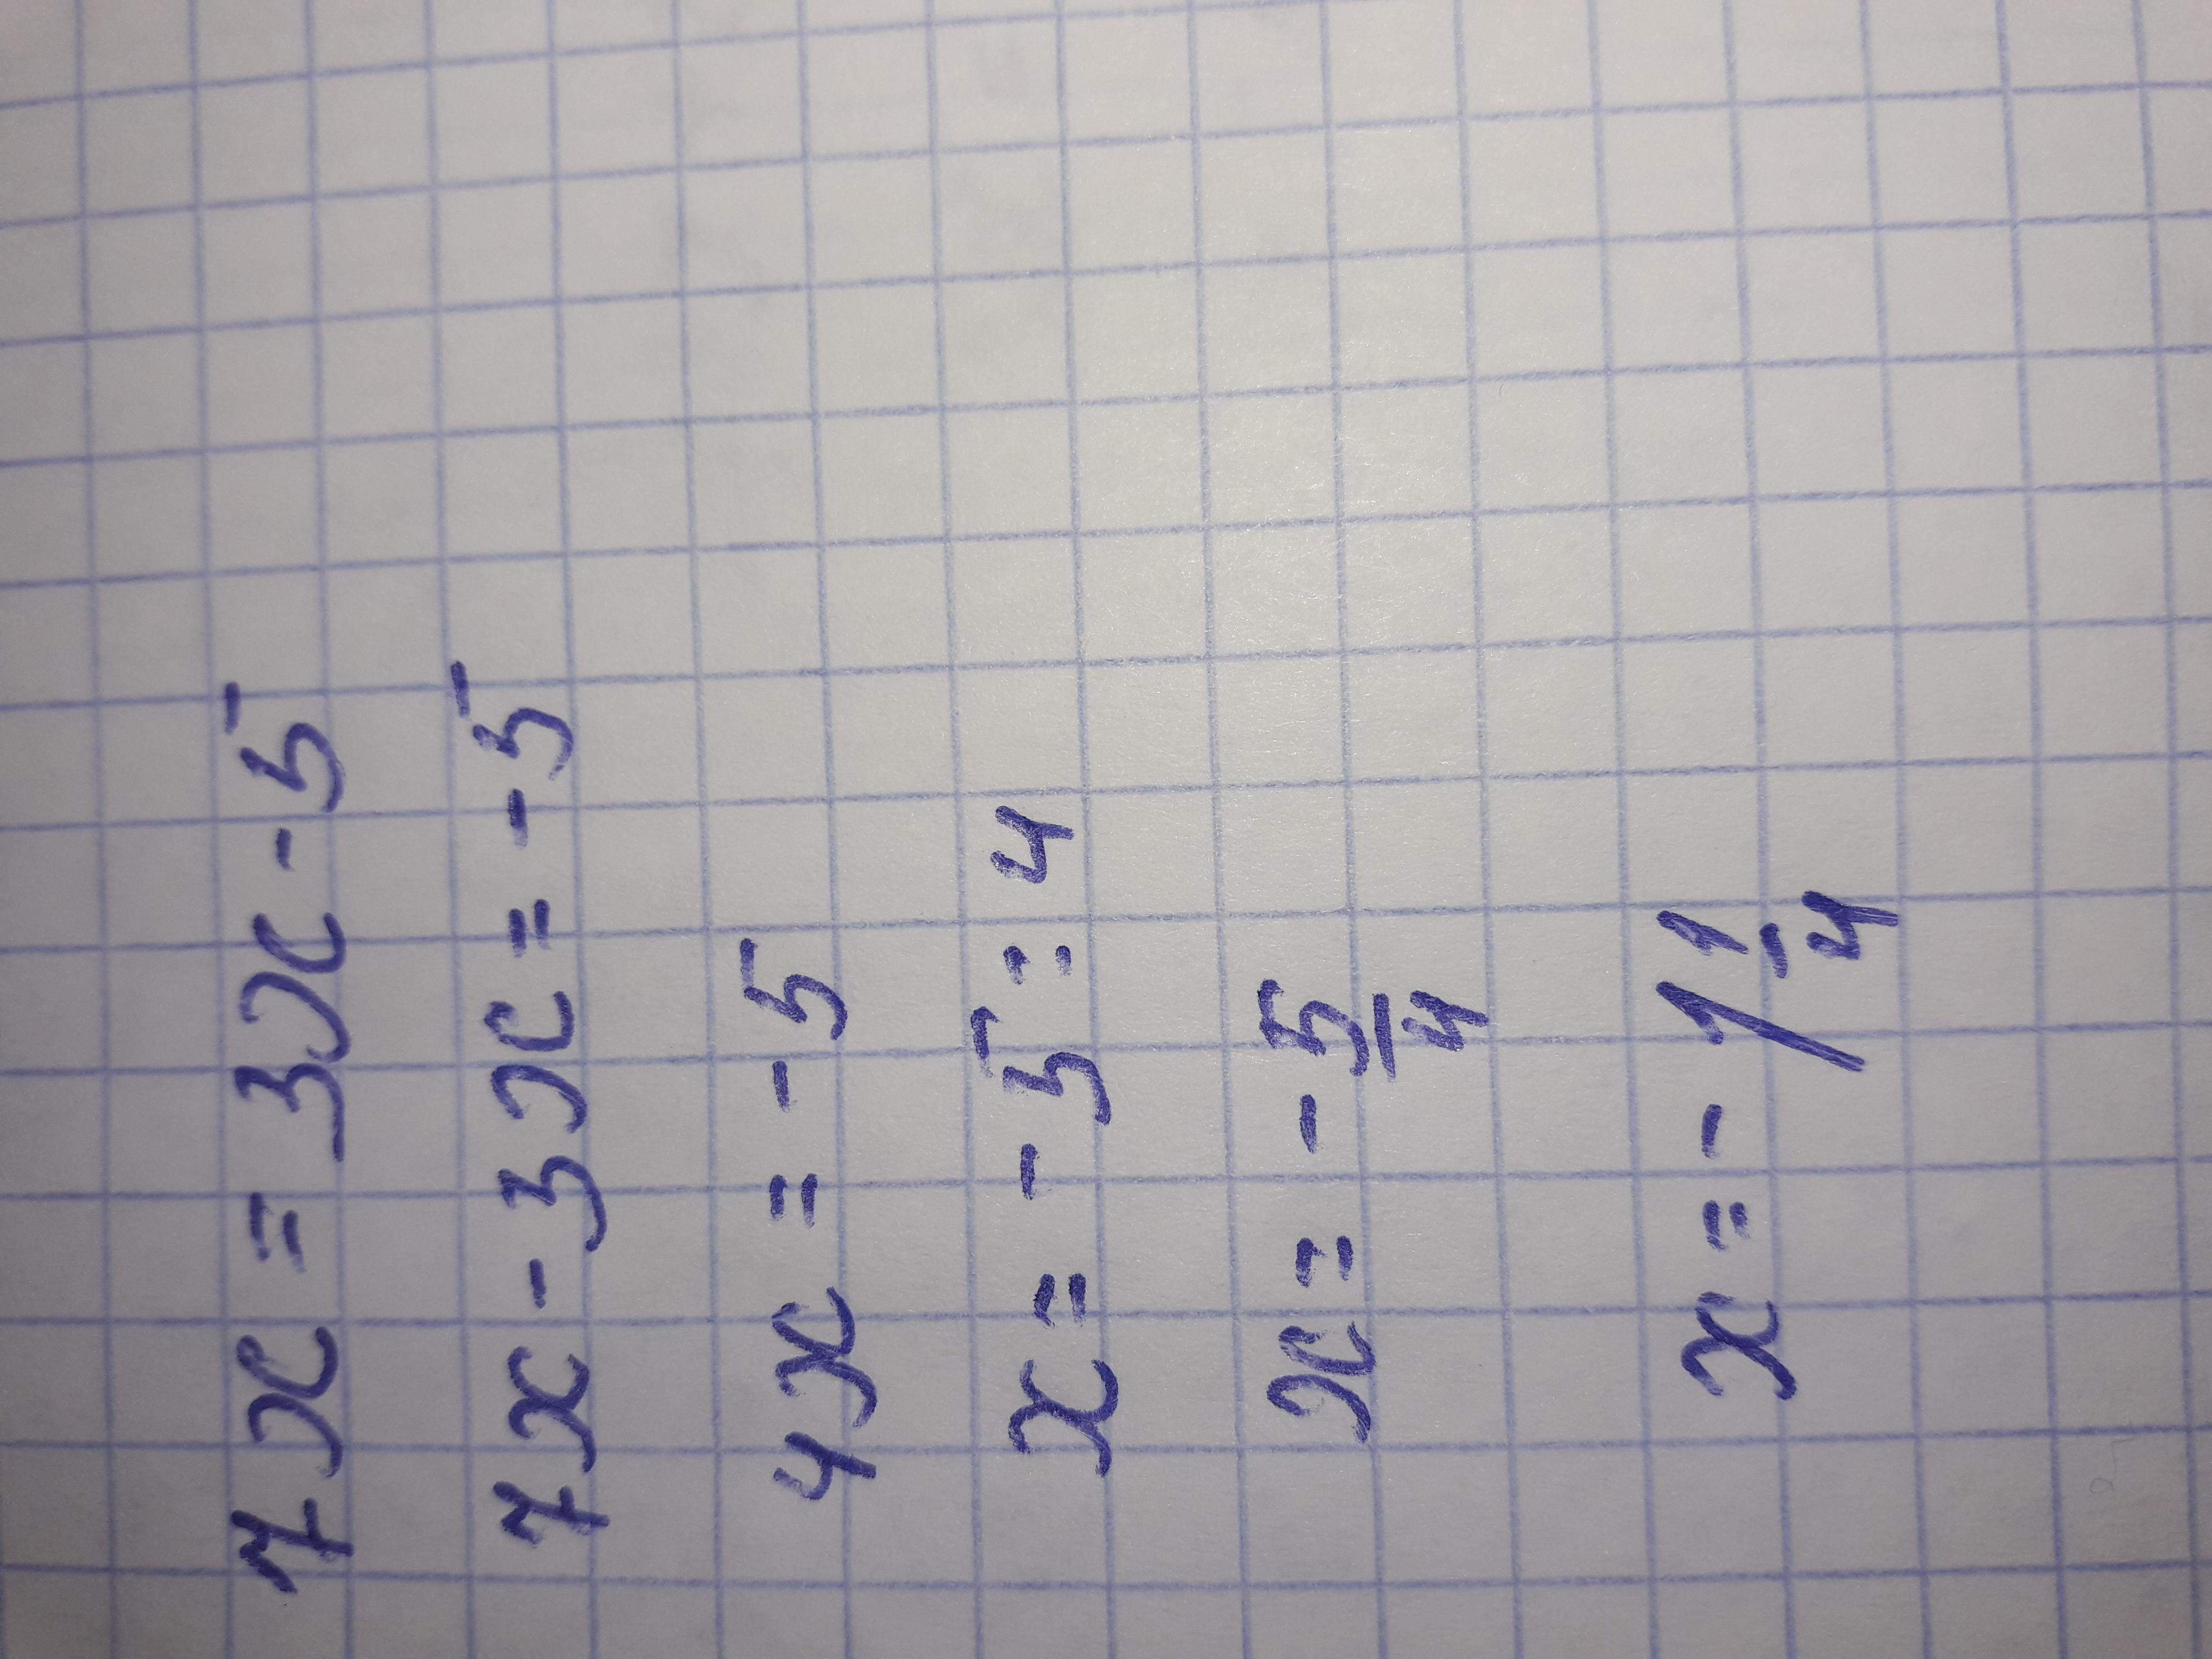 7x = 3x - 5
7x - 3x = -5
4x = -5
x = -5 : 4
x = -5/4
x = -1 1/4